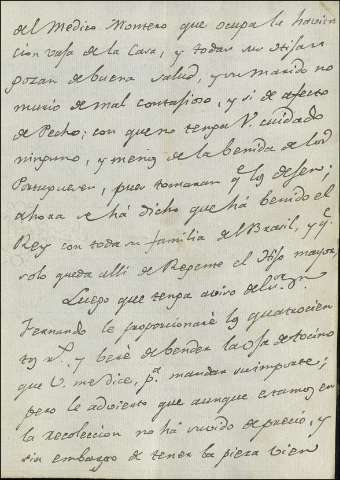 del Medico Montero que ocupa la havita
cion vaja de la Casa, y todas sus Hijas
gozan de buena salud, y su marido no
murio de mal contagioso, y si de afecto
de Pecho; con que no tenga V. cuidado
ninguno, y menos de la benida de los
Portugueses, pues tomaran qe. los dejen;
ahora se há dicho que há benido el
Rey con toda su familia del Brasil, y qe.
solo queda alli de Regente el Hijo mayor,
Luego que tenga aviso del
Fernando le proporcionaré los quatrocien
tos rs. y beré de bender la oja de tocino
que V. me dice, pa. mandar su importe;
pero le advierto que aunque estamos en
la recoleccion no há suvido de precio, y
sin embargo de tener la pieza bien